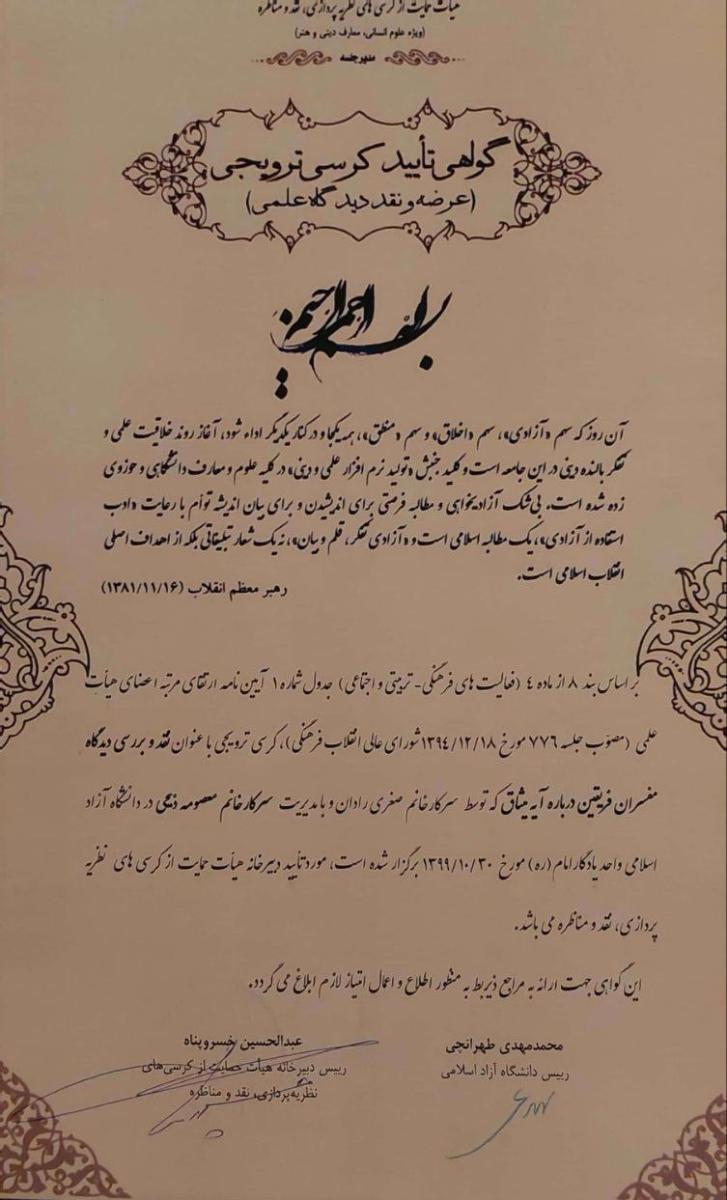 هیأت حمایت از کرسی های نظریه پردازی، نقد و مناظره
(ویژه علوم انسانی، معارف دینی و هنر)
مدیر جلسه
گواهی تأیید کرسی ترویجی
(عرضه و نقد دیدگاه علمی)
بسم الله الرحمن الرحیم
آن روز که سهم «آزادی»، سهم «اخلاق» و سهم «منطق»، همه یکجا و در کنار یکدیگر اداء شود، آغاز روند خلاقیت علمی و
تفکر بالنده دینی در این جامعه است و کلید جنبش «تولید نرم افزار علمی و دینی» در کلیه علوم و معارف دانشگاهی و حوزوی
زده شده است. بی شک آزادیخواهی و مطالبه فرصتی برای اندیشیدن و برای بیان اندیشه توأم با رعایت «ادب
استفاده از آزادی»، یک مطالبه اسلامی است و «آزادی تفکر، قلم و بیان»، نه یک شعار تبلیغاتی بلکه از اهداف اصلی
انقلاب اسلامی است.
رهبر معظم انقلاب (۱۳۸۱/۱۱/۱۶)
بر اساس بند ۸ از ماده ۴ (فعالیت های فرهنگی- تربیتی و اجتماعی) جدول شماره ۱ آیین نامه ارتقای مرتبه اعضای هیأت
علمی (مصوب جلسه ۷۷۶ مورخ ۱۳۹۴/۱۲/۱۸ شورای عالی انقلاب فرهنگی)، کرسی ترویجی با عنوان نقد و بررسی دیدگاه
مفسران فریقین درباره آیه میثاق که توسط سرکار خانم صغری رادان و با مدیریت سرکار خانم معصومه ذبیحی در دانشگاه آزاد
اسلامی واحد یادگار امام (ره) مورخ ۱۳۹۹/۱۰/۳۰ برگزار شده است، مورد تأیید دبیرخانه هیأت حمایت از کرسی های نظریه
پردازی، نقد و مناظره می باشد.
این گواهی جهت ارائه به مراجع ذیربط به منظور اطلاع و اعمال امتیاز لازم ابلاغ می گردد.
محمدمهدی طهرانچی
رییس دانشگاه آزاد اسلامی
عبدالحسین خسروپناه
رییس دبیرخانه هیأت حمایت از کرسی‌های
نظریه‌پردازی، نقد و مناظره